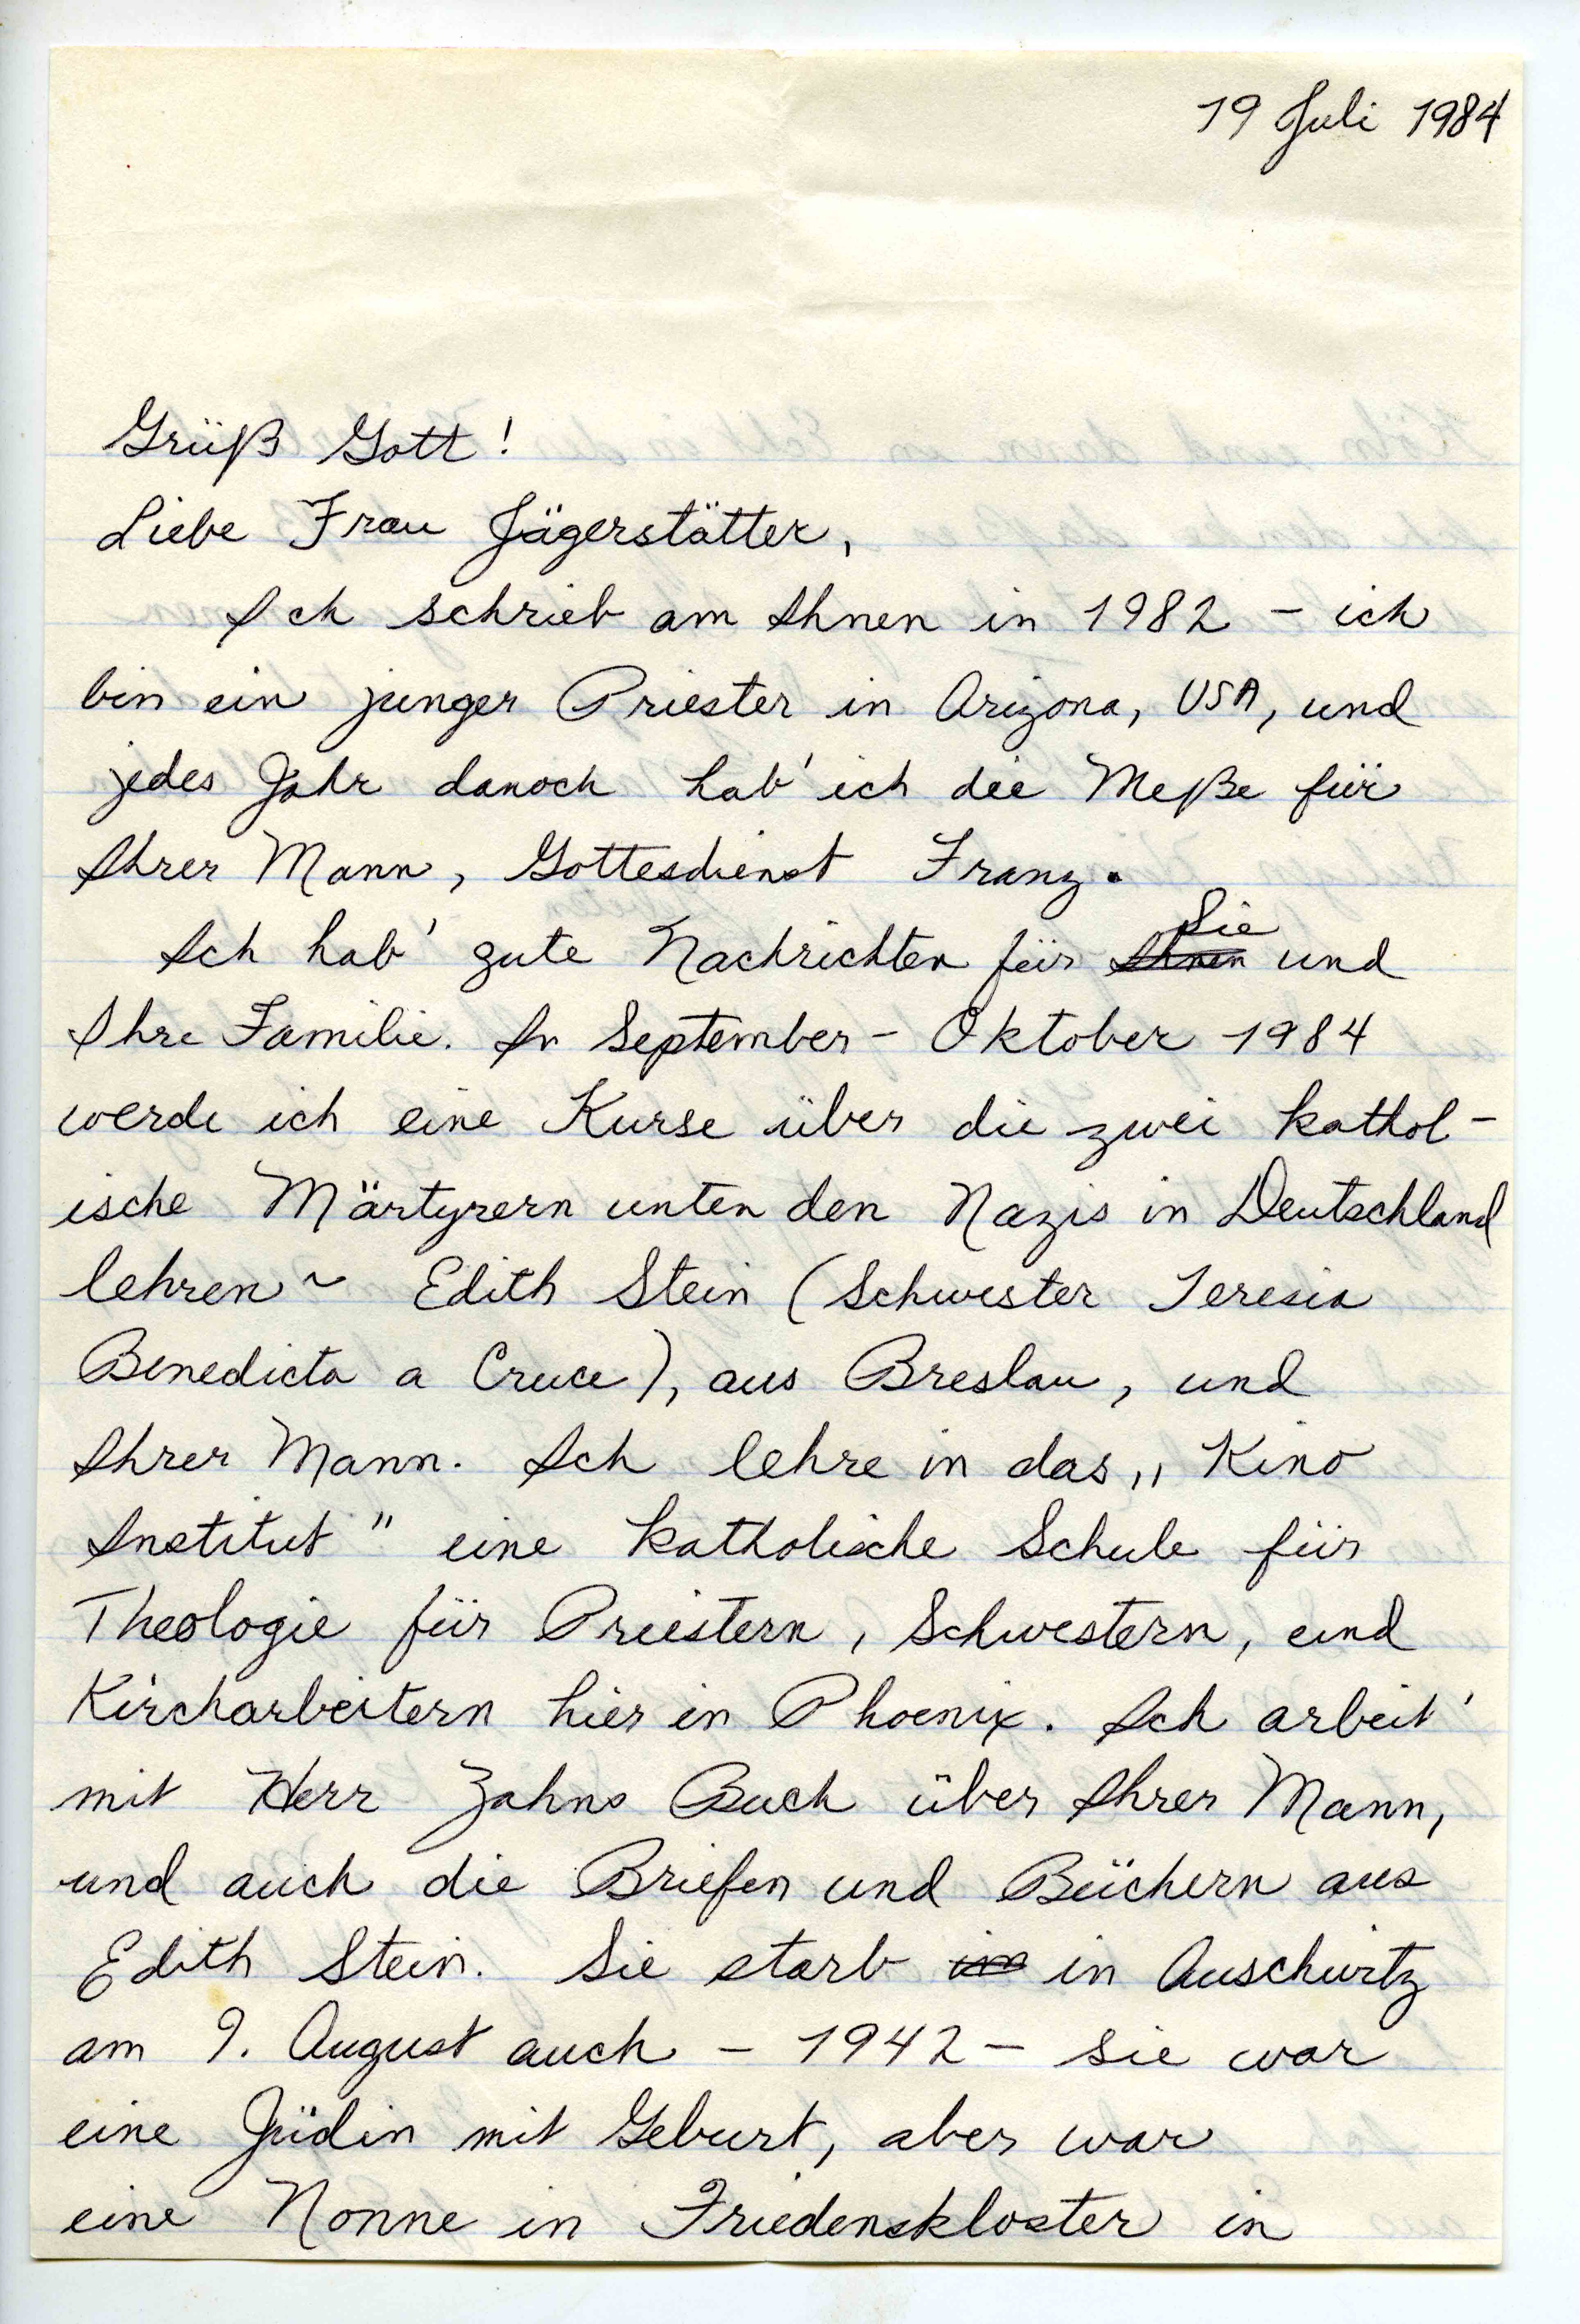 19 Juli 1984
Grüß Gott!
Liebe Frau Jägerstätter,
Ich schrieb am Ihnen in 1982 - ich
bin ein junger Priester in Arizona, USA, und
jedes Jahr danoch hab' ich die Meße für
Ihrer Mann, Gottesdienst Franz.
Ich hab' gute Nachrichten für Ihnen Sie und
Ihre Familie. In September - Oktober 1984
werde ich eine Kurse über die zwei kathol-
ische Märtyrern unter den Nazis in Deutschland
lehren ~ Edith Stein (Schwester Teresia
Benedicta a Cruce), aus Breslau, und
Ihrer Mann. Ich lehre in das „Kino
Institut" eine katholische Schule für
Theologie für Priestern, Schwestern, und
Kircharbeitern hier in Phoenix. Ich arbeit'
mit Herr Zahns Buch über Ihrer Mann,
und auch die Briefen und Büchern aus
Edith Stein. Sie starb im in Auschwitz
am 9. August auch - 1942 - sie war
eine Jüdin mit Geburt, aber war
eine Nonne in Friedenskloster in